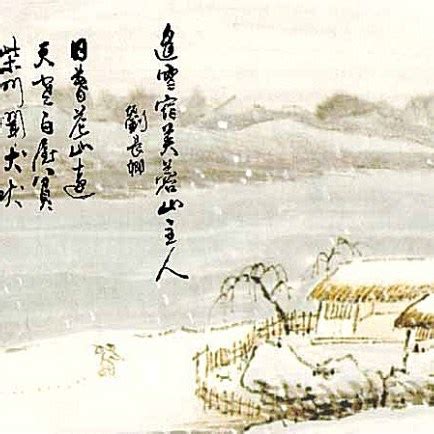 逢雪宿芙蓉山主人
劉長卿
日暮苍山遠
天寒白屋貧
柴门闻犬吠